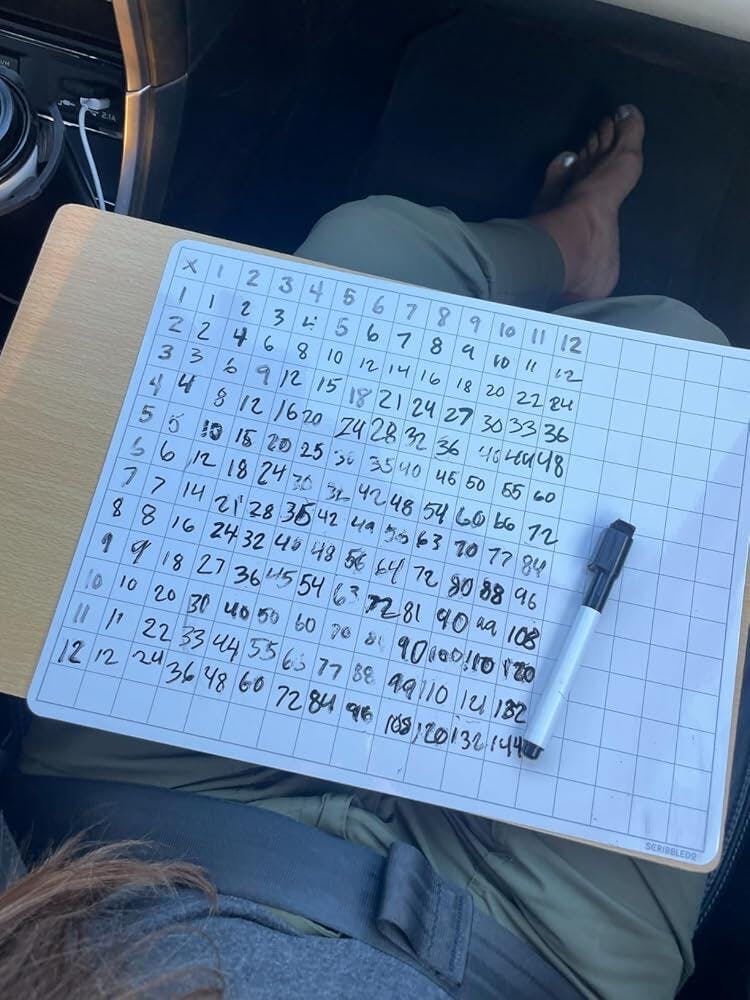 2.1A
X 1 2 3 4 5 6 7 8 9 10 11 12
1 1 2 3 4 5 6 7 8 9 10 11 12
2 2 4 6 8 10 12 14 16 18 20 22 24
3 3 6 9 12 15 18 21 24 27 30 33 36
4 4 8 12 16 20 24 28 32 36 40 44 48
5 5 10 15 20 25 30 35 40 45 50 55 60
6 6 12 18 24 30 36 42 48 54 60 66 72
7 7 14 21 28 35 42 49 56 63 70 77 84
8 8 16 24 32 40 48 56 64 72 80 88 96
9 9 18 27 36 45 54 63 72 81 90 99 108
10 10 20 30 40 50 60 70 80 90 100 110 120
11 11 22 33 44 55 66 77 88 99 110 121 132
12 12 24 36 48 60 72 84 96 108 120 132 144
SCRIBBLEDO